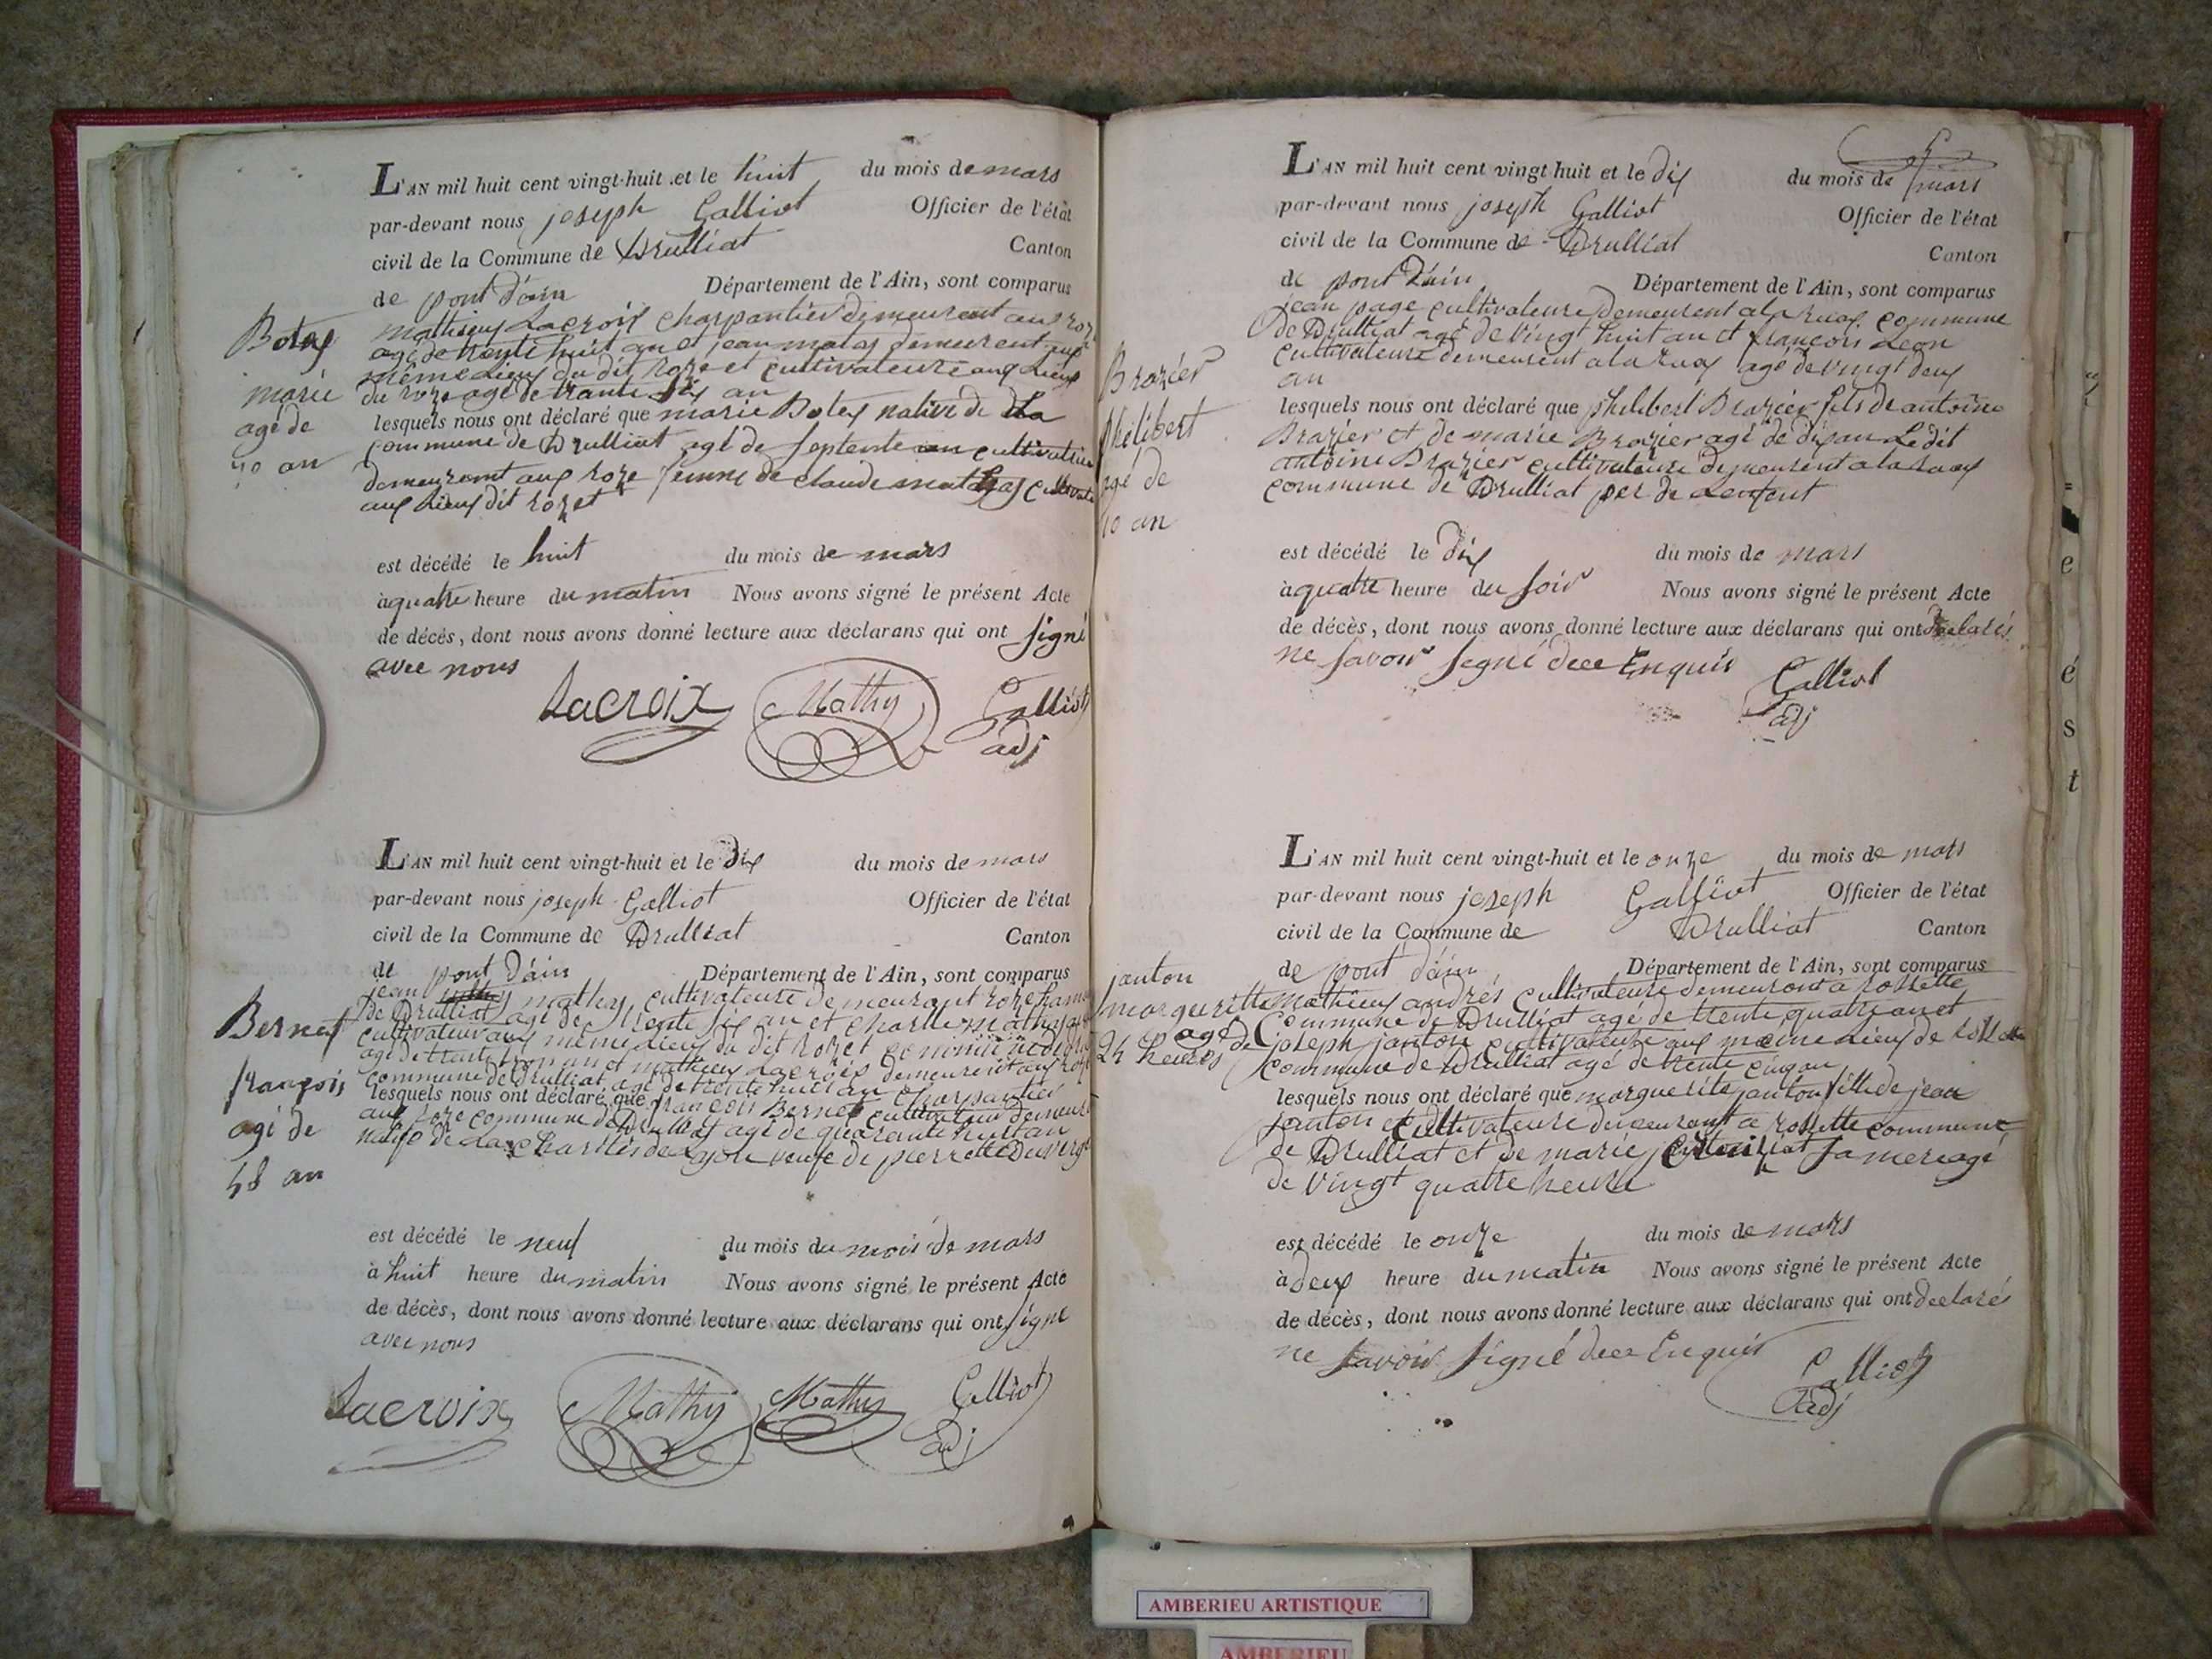 L'AN mil huit cent vingt-huit et le huit du mois de mars
par-devant nous joseph Galliot Officier de l'état
civil de la Commune de Drulliat Canton
de pont d'ain Département de l'Ain, sont comparus
mathieux Lacroix charpantier demeurant aux roz
agé de trente huit an et jean matas demeurent aux
même Lieux du dit roze et cultivateure aux Lieux
du roze agé de trante six an
lesquels nous ont déclaré que marie Botex native de La
commune de Drulliat agé de septente an cultivatrice
demeurent aux roze femme de claude mathas cultivate
aux Lieux dit rozet
Botex
marie
agé de
70 an
est décédé le huit du mois de mars
à quatre heure du matin Nous avons signé le présent Acte
de décès, dont nous avons donné lecture aux déclarans qui ont signé
avec nous
Lacroix Mathy Galliot
adj
L'AN mil huit cent vingt-huit et le dix du mois de mars
par-devant nous joseph Galliot Officier de l'état
civil de la Commune de Drulliat Canton
de pont d'ain Département de l'Ain, sont comparus
jean mathy cultivateure demeurant roze hame
de Drulliat agé de trente six an et charlle mathy
cultivateur aux même Lieux du dit rozet
agé de trente an et mathieux Lacroix demeurent aux roze
commune de Drulliat agé de trente huit an charpantier
lesquels nous ont déclaré que françois Bernet cultivateur demeure
aux roze commune de Drulliat agé de quarante huit an
natife de La charités de Lyon veufe de pierrette Duverge
Bernet
françois
agé de
48 an
est décédé le neuf du mois du mois de mars
à huit heure du matin Nous avons signé le présent Acte
de décès, dont nous avons donné lecture aux déclarans qui ont signe
avec nous
Lacroix Mathy Mathy Galliot
adj
L'AN mil huit cent vingt huit et le dix du mois de mars
par-devant nous joseph Galliot Officier de l'état
civil de la Commune de Drulliat Canton
de pont d'ain Département de l'Ain, sont comparus
jean page cultivateure demeurent a la ruax commune
de Drulliat agé de vingt huit an et françois Leon
cultivateure demeurent a la ruax agé de vingt deux
an
lesquels nous ont déclaré que philibert Brazier fils de antoine
Brazier et de marie Brozier agé de dix an Le dit
antoine Brazier cultivateure demeurent a la ruax
commune de Drulliat per de Lenfent
Brozier
philibert
agé de
10 an
est décédé le dix du mois de mars
à quatre heure du soir Nous avons signé le présent Acte
de décès, dont nous avons donné lecture aux déclarans qui ont declarés
ne savoir segné dece Enquis
Galliot
adj
L'AN mil huit cent vingt-huit et le onze du mois de mars
par-devant nous joseph Galliot Officier de l'état
civil de la Commune de Drulliat Canton
de pont d'ain Département de l'Ain, sont comparus
mathieux andrés cultivateure demeuront a rossette
commune de Drulliat agé de trente quatre an et
joseph janton cultivateure aux maime Lieux de rossette
commune de Drulliat agé de trente cinq an
lesquels nous ont déclaré que marguerite janton fille de jean
janton cultivateure demeurent a rossette commune
de Drulliat et de marie sa mere agé
de vingt quatre heure
janton
margueritte
agé de
24 heures
est décédé le onze du mois de mars
à deux heure du matin Nous avons signé le présent Acte
de décès, dont nous avons donné lecture aux déclarans qui ont declaré
ne savoir signé dece Enquis
Galliot
adj
e
é
s
t
AMBERIEU ARTISTIQUE
AMBERIEU